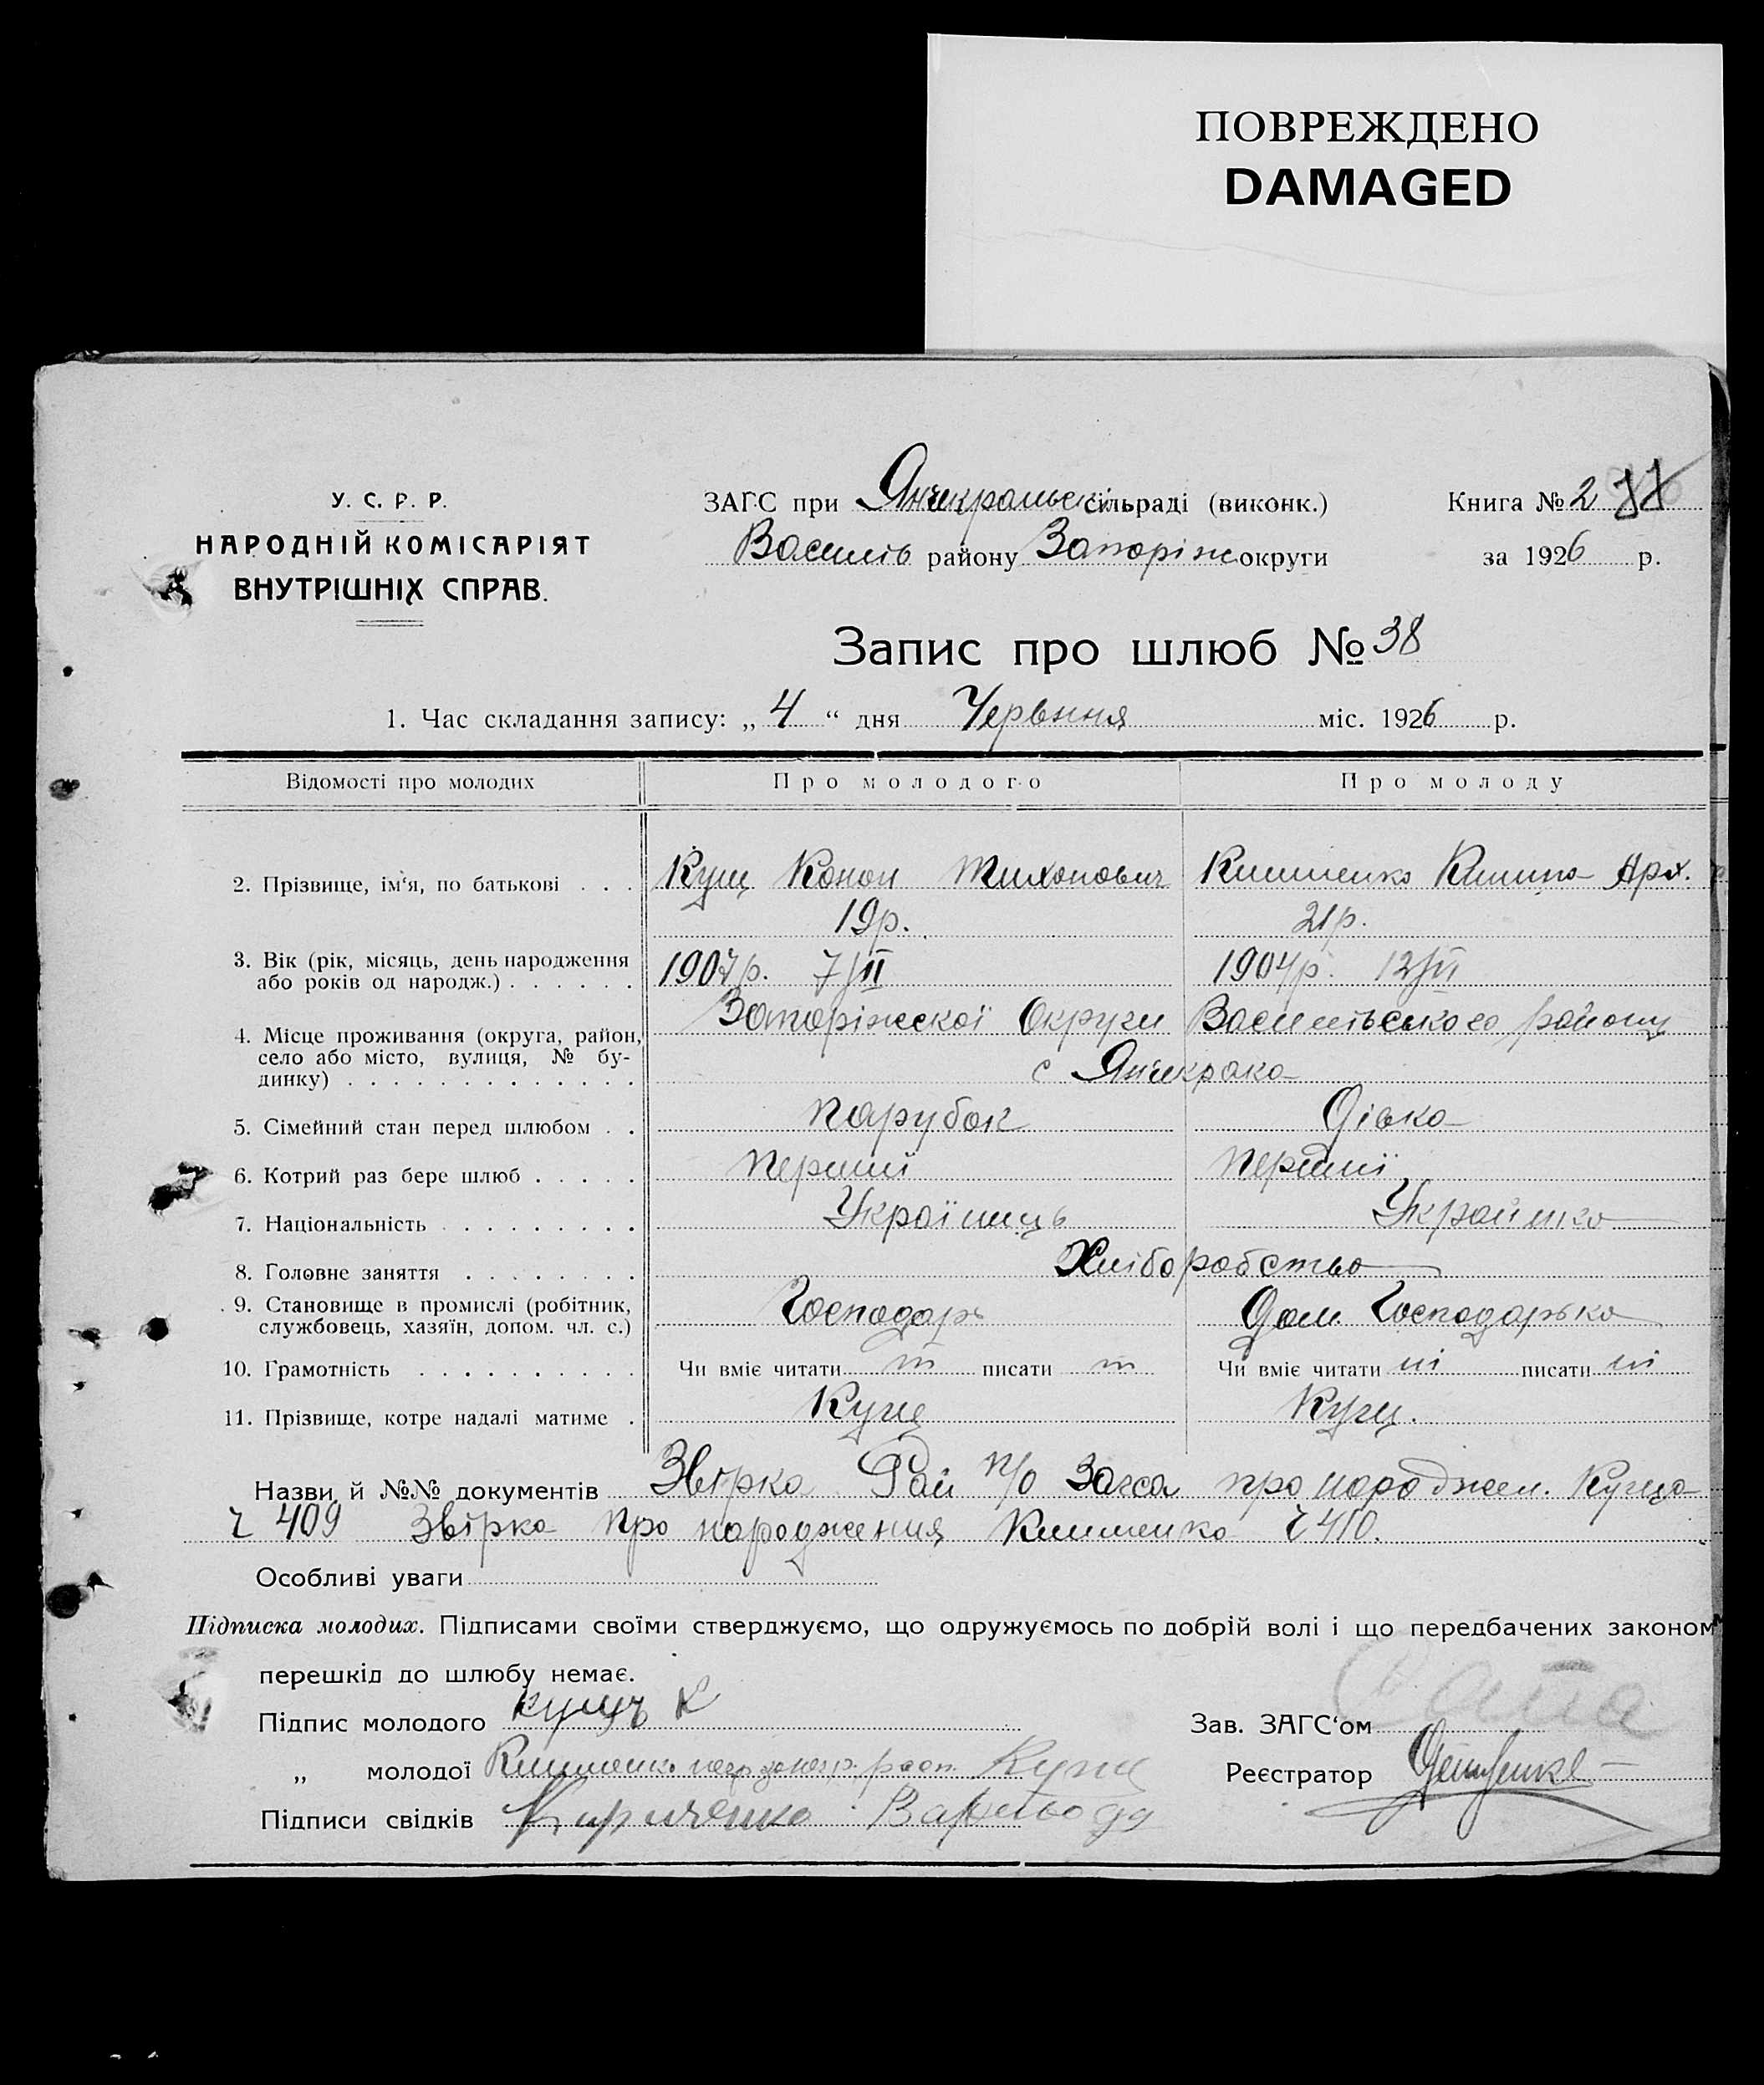 ПОВРЕЖДЕНО
DAMAGED
У. С. Р. Р.
НАРОДНІЙ КОМІСАРІЯТ
ВНУТРІШНІХ СПРАВ.
ЗАГС при Янчекракськ сільраді (виконк.)
Василів району Запоріж округи
Книга № 2
за 1926 р.
Запис про шлюб № 38
1. Час складання запису: „ 4 “ дня Червьня міс. 1926 р.
Відомості про молодих
Про молодого
Про молоду
2. Прізвище, ім'я, по батькові . . .
Кущ Конон Тихонович
19р.
21р.
3. Вік (рік, місяць, день народження
або років од народж.) . . . . . .
1907р. 7/II
1904р.
4. Місце проживання (округа, район,
село або місто, вулиця, № бу-
динку) . . . . . . . . . . . . .
Запоріжської Округи Василівського району
с Янчекрака
5. Сімейний стан перед шлюбом . .
Парубок
Дівка
6. Котрий раз бере шлюб . . . . .
Перший
Перший
7. Національність . . . . . . . . .
Українець
Українка
8. Головне заняття . . . . . . . .
Хліборобство
9. Становище в промислі (робітник,
службовець, хазяїн, допом. чл. с.)
Господарь
Дом. Господарька
10. Грамотність . . . . . . . . . .
Чи вміє читати т писати т
Чи вміє читати ні писати ні
11. Прізвище, котре надалі матиме .
Кущ
Кущ.
Назви й №№ документів Звірка Рай п/о Загса про народжен. Куща
ч 409 Звірка про народження ч 410.
Особливі уваги
Підписка молодих. Підписами своїми стверджуємо, що одружуємось по добрій волі і що передбачених законом
перешкід до шлюбу немає.
Підпис молодого кущъ К
„ молодої Кущ
Підписи свідків
Зав. ЗАГС‘ом
Реєстратор